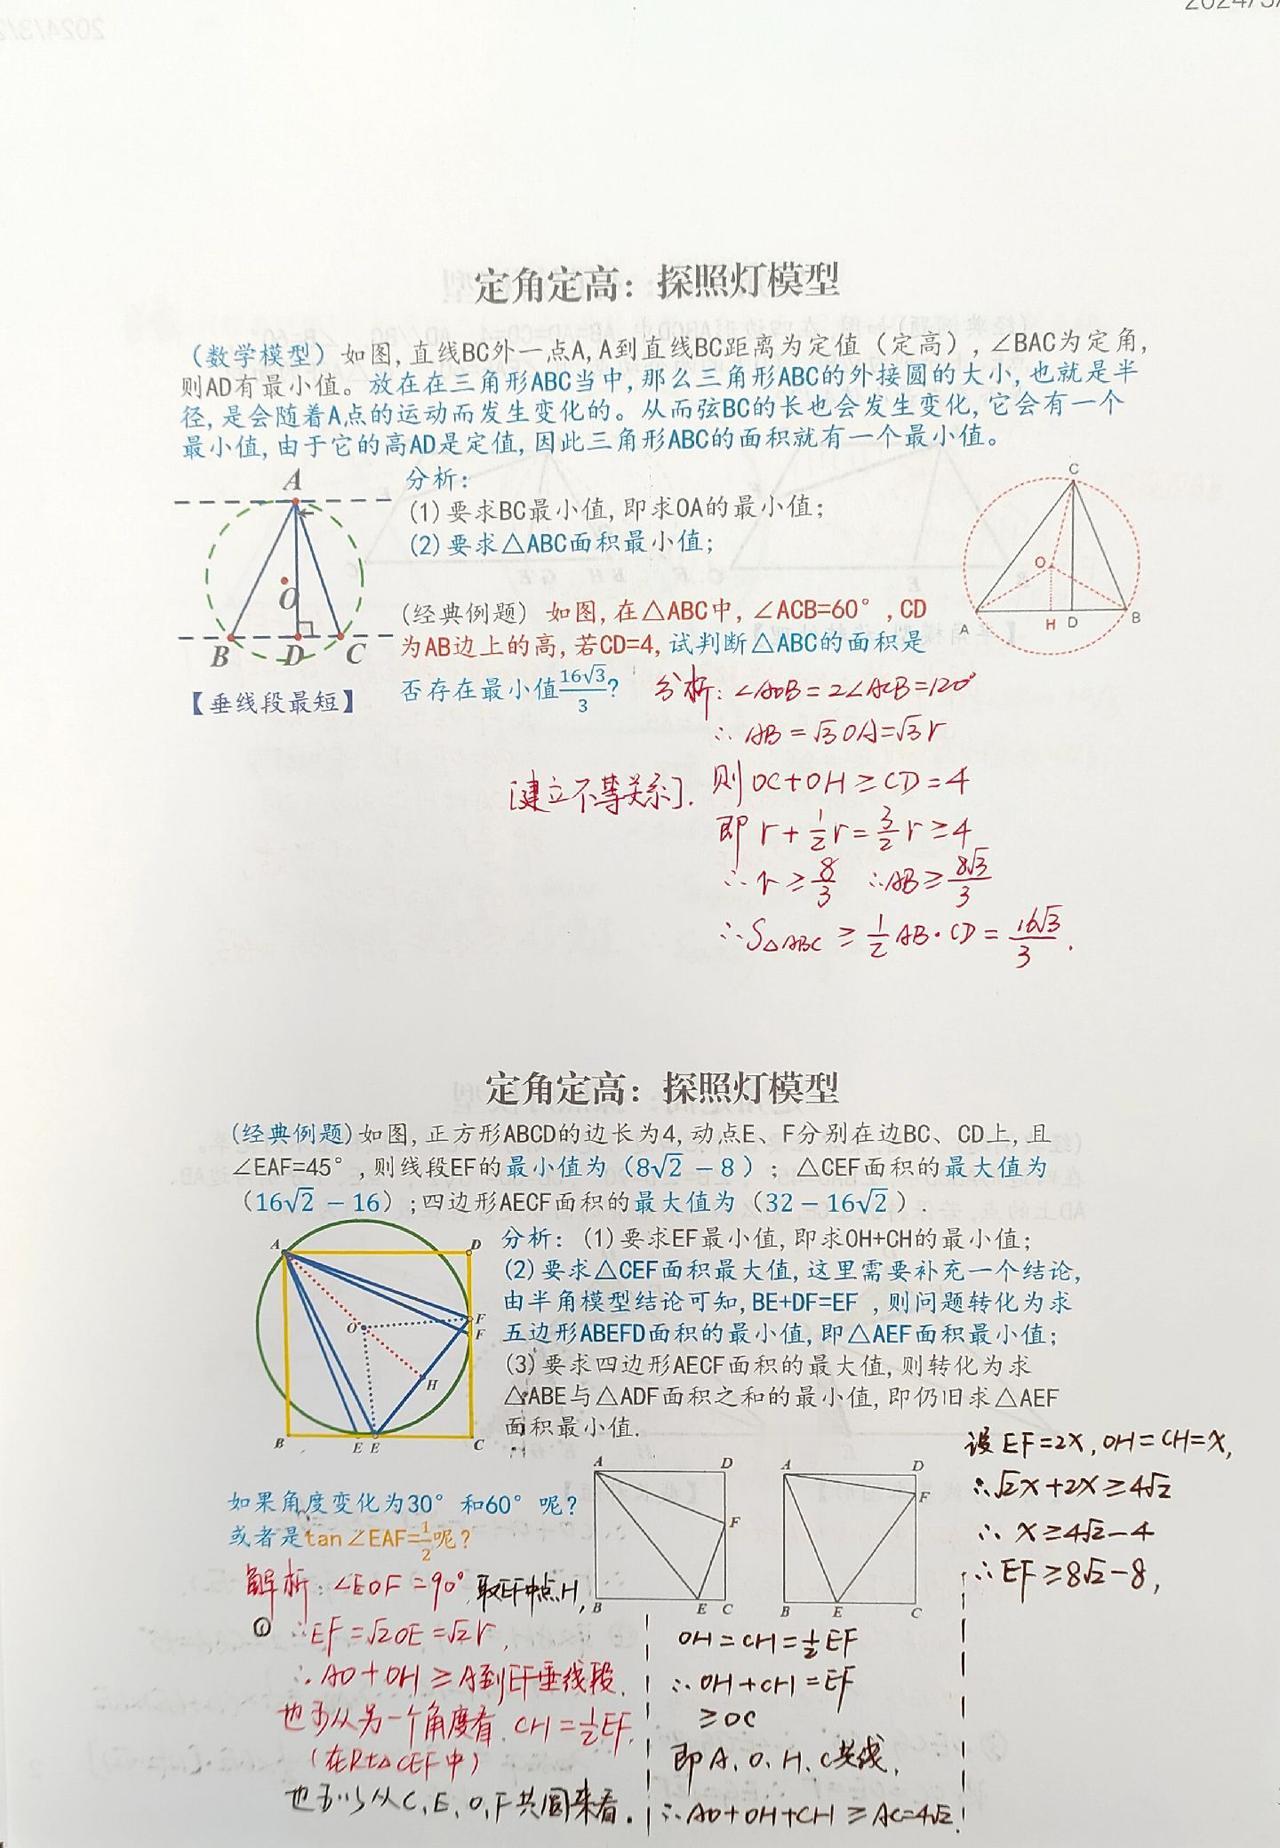 2024/3/
定角定高：探照灯模型
（数学模型）如图,直线BC外一点A,A到直线BC距离为定值（定高）,∠BAC为定角,
则AD有最小值。放在在三角形ABC当中,那么三角形ABC的外接圆的大小,也就是半
径,是会随着A点的运动而发生变化的。从而弦BC的长也会发生变化,它会有一个
最小值,由于它的高AD是定值,因此三角形ABC的面积就有一个最小值。
分析：
(1)要求BC最小值,即求OA的最小值；
(2)要求△ABC面积最小值；
A
O
B D C
【垂线段最短】
C
O
A H D B
(经典例题) 如图,在△ABC中,∠ACB=60°,CD
为AB边上的高,若CD=4,试判断△ABC的面积是
否存在最小值16√3/3?
分析：∠AOB=2∠ACB=120°
∴AB=√3OA=√3r
[建立不等关系]. 则OC+OH≥CD=4
即 r+1/2r=3/2r≥4
∴r≥8/3 ∴AB≥8√3/3
∴S△ABC≥1/2AB·CD=16√3/3.
定角定高：探照灯模型
(经典例题)如图,正方形ABCD的边长为4,动点E、F分别在边BC、CD上,且
∠EAF=45°,则线段EF的最小值为（8√2－8）；△CEF面积的最大值为
（16√2－16）;四边形AECF面积的最大值为（32－16√2）.
分析：(1)要求EF最小值,即求OH+CH的最小值；
(2)要求△CEF面积最大值,这里需要补充一个结论,
由半角模型结论可知,BE+DF=EF,则问题转化为求
五边形ABEFD面积的最小值,即△AEF面积最小值；
(3)要求四边形AECF面积的最大值,则转化为求
△ABE与△ADF面积之和的最小值,即仍旧求△AEF
面积最小值.
A D
O F
F
H
B E E C
如果角度变化为30°和60°呢？
或者是tan∠EAF=1/2呢？
A D
F
B E C
A D
F
B E C
解析：∠EOF=90°,取EF中点H,
① ∴EF=√2OE=√2r,
∴AO+OH≥A到EF垂线段.
也可从另一个角度看.CH=1/2EF.
(在Rt△CEF中)
也可以从C,E,O,F共圆来看.
OH=CH=1/2EF
∴OH+CH=EF
≥OC
即A、O、H、C共线,
∴AO+OH+CH≥AC=4√2.
设EF=2x,OH=CH=x,
∴√2x+2x≥4√2
∴x≥4√2-4
∴EF≥8√2-8,